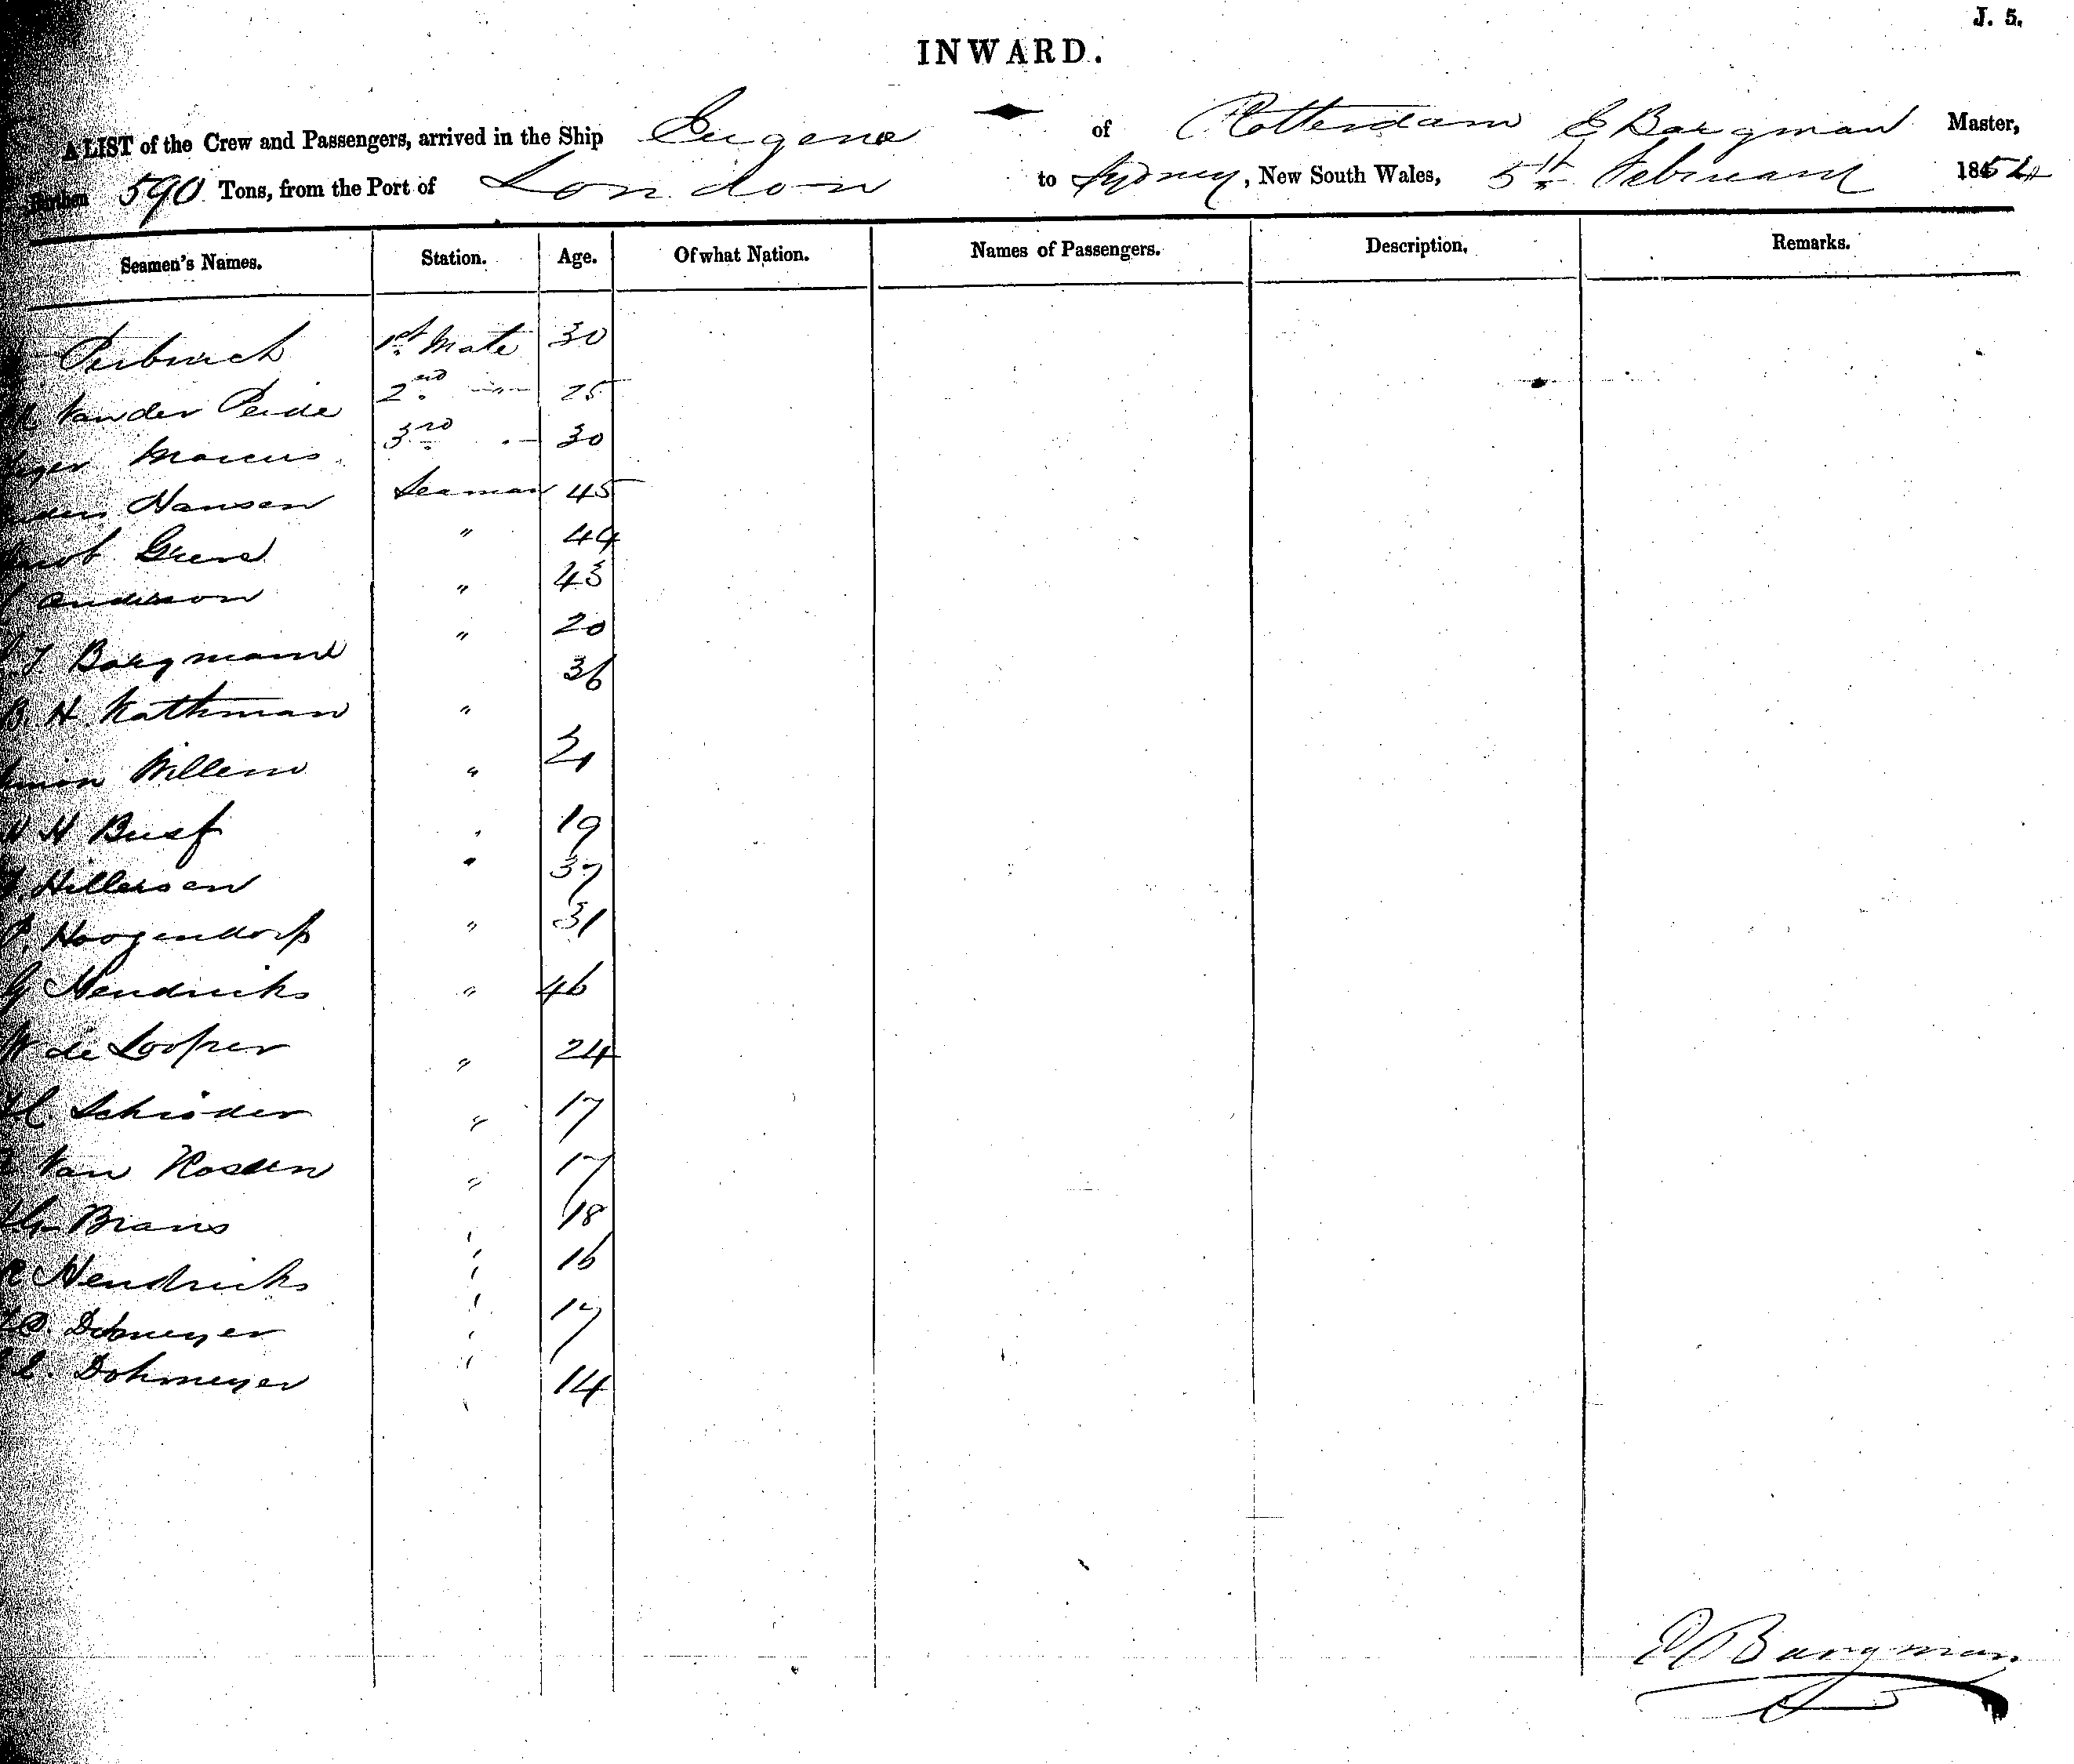 J. 5.
INWARD.
A LIST of the Crew and Passengers, arrived in the Ship Eugene of Rotterdam E Bargman Master,
Burthen 590 Tons, from the Port of London to Sydney, New South Wales, 5th February 1854
Seamen's Names. Station. Age. Of what Nation. Names of Passengers. Description. Remarks.
1st Mate 30
Van der Peide 2nd " 25
Marcus 3rd " 30
Hansen Seaman 45
" 44
Anderson " 43
Bargmann " 20
B. H. Kathman " 36
Willem " 21
H Busf " 19
Hillersen " 37
P. Hoogendorp " 31
G Hendricks " 46
W de Looper " 24
Schröder " 17
Van Rossen " 17
Brans " 18
Hendricks " 16
Dohmeyer " 17
Dohmeyer " 14
Bargman